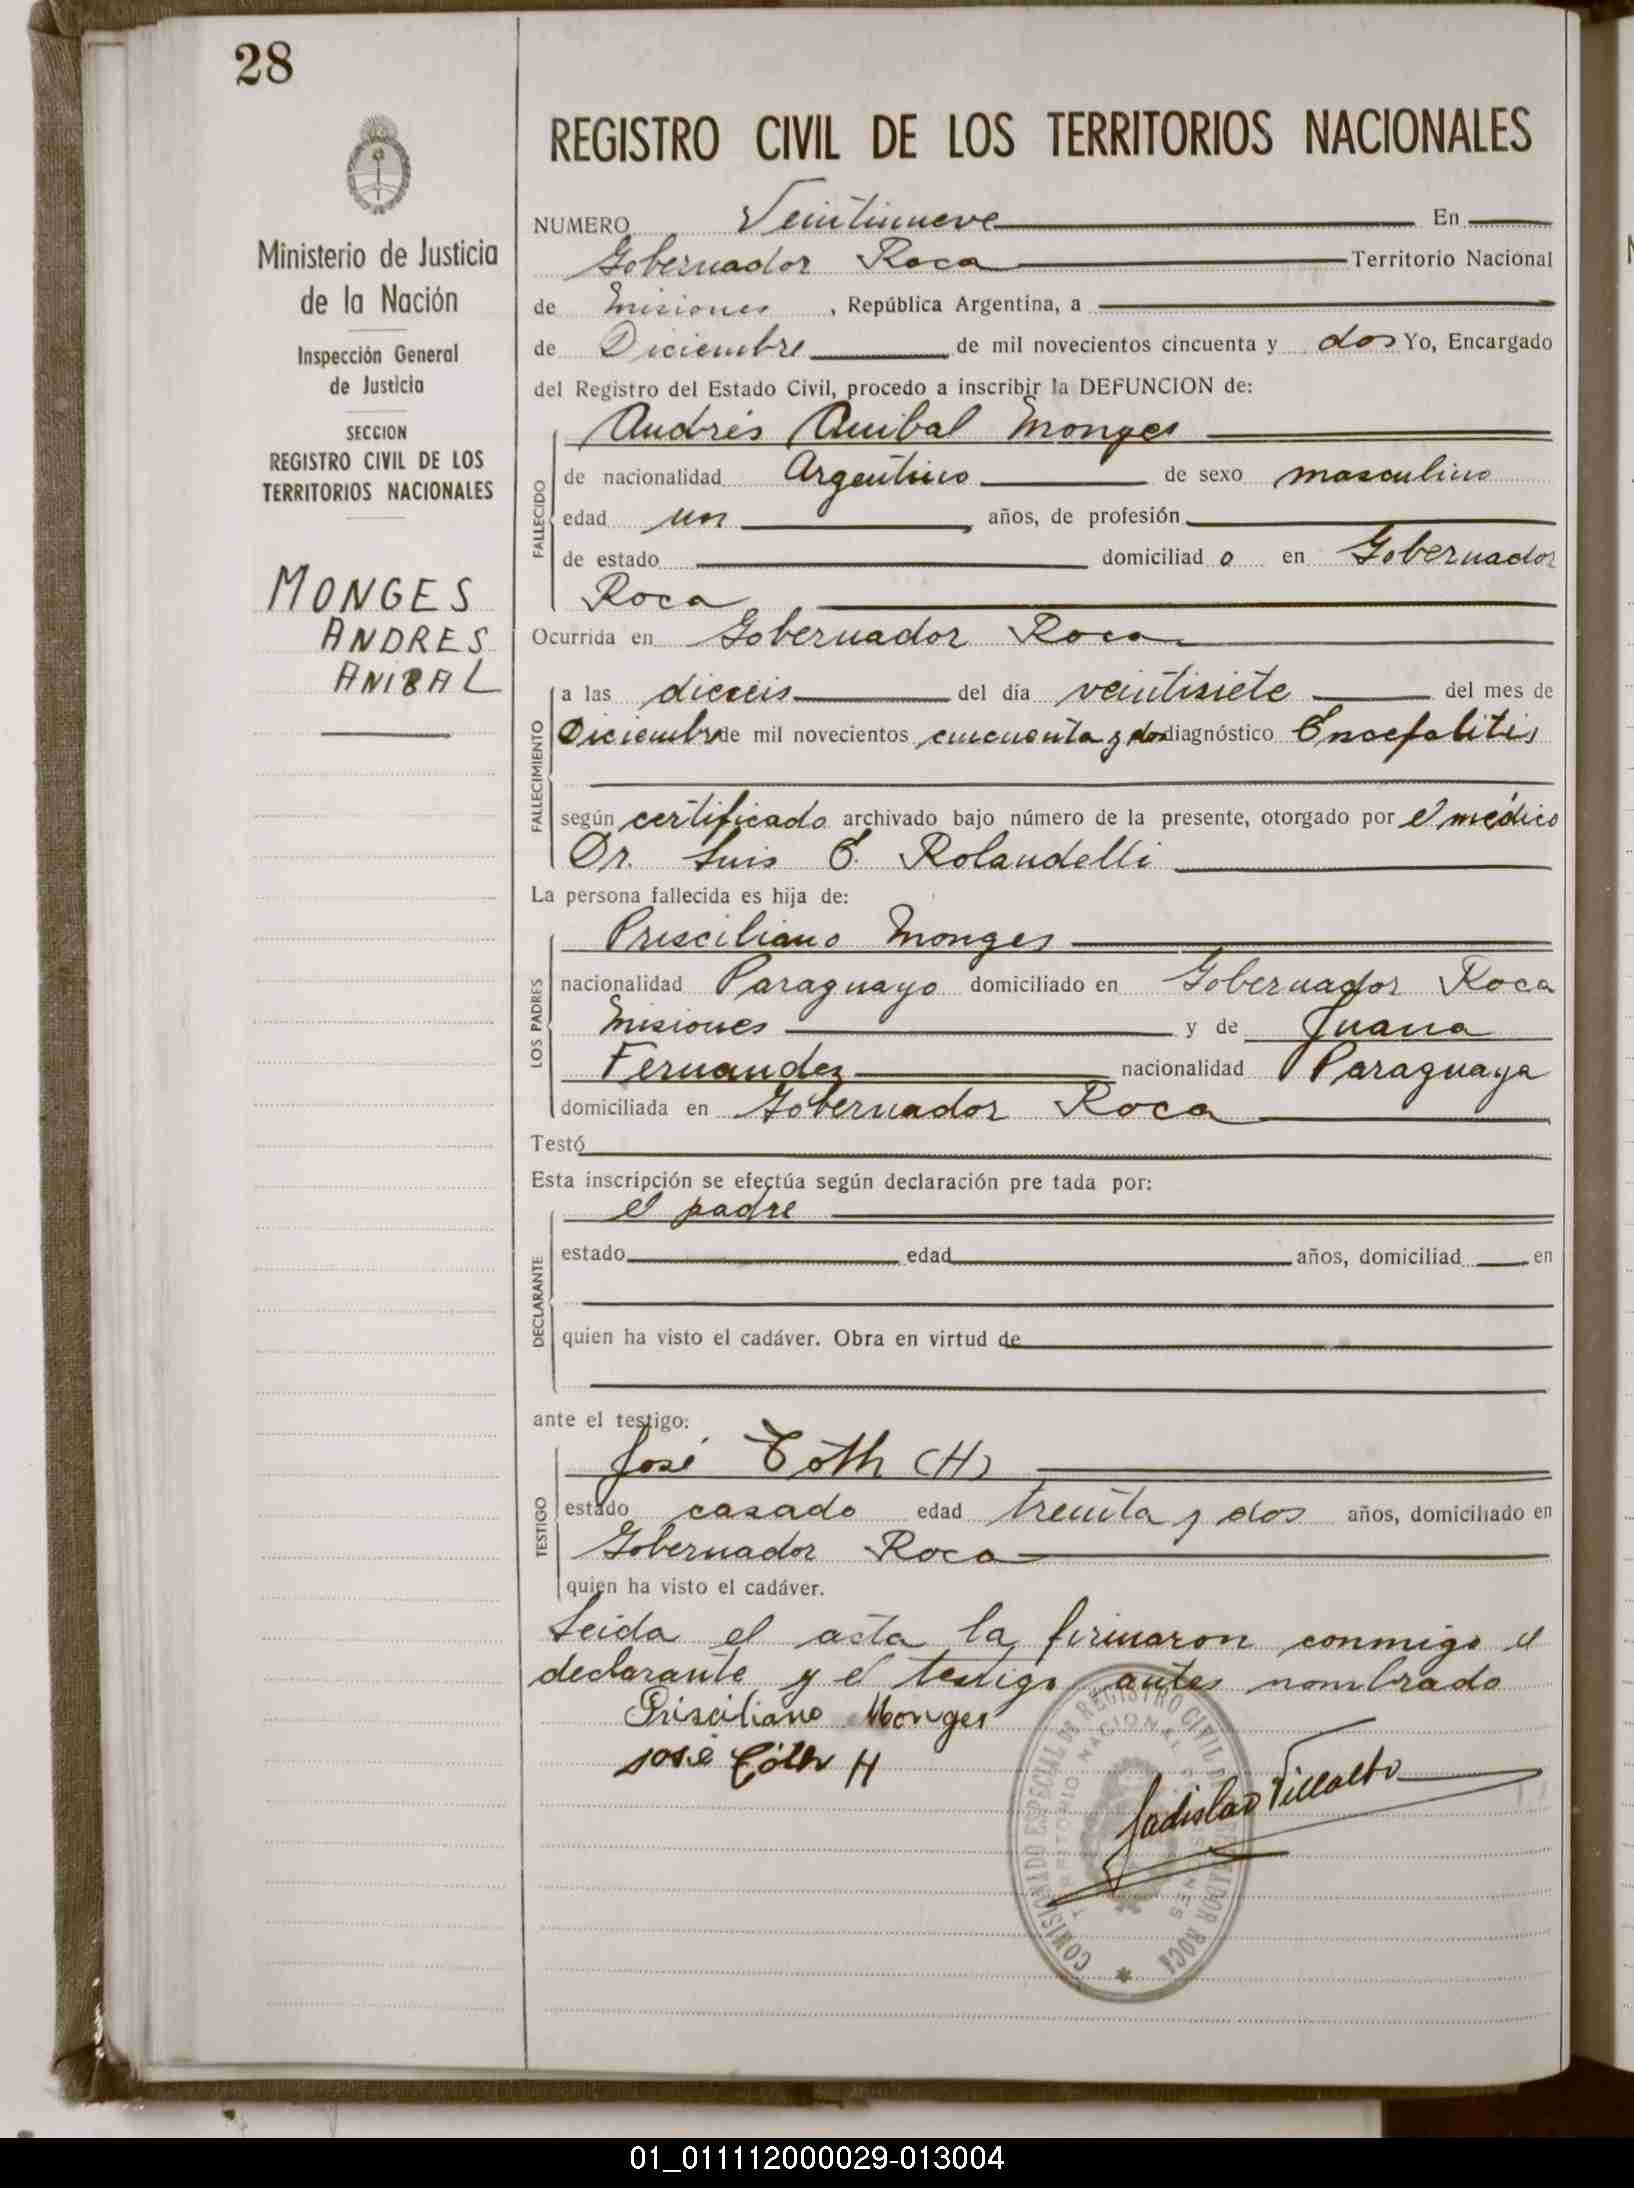 28
Ministerio de Justicia
de la Nación
Inspección General
de Justicia
SECCION
REGISTRO CIVIL DE LOS
TERRITORIOS NACIONALES
MONGES
ANDRES
ANIBAL
REGISTRO CIVIL DE LOS TERRITORIOS NACIONALES
NUMERO Veintinueve En
Gobernador Roca Territorio Nacional
de Misiones , República Argentina, a
de Diciembre de mil novecientos cincuenta y dos Yo, Encargado
del Registro del Estado Civil, procedo a inscribir la DEFUNCION de:
FALLECIDO
Andrés Anibal Monges
de nacionalidad Argentino de sexo masculino
edad un años, de profesión
de estado domiciliad o en Gobernador
Roca
Ocurrida en Gobernador Roca
FALLECIMIENTO
a las dieceis del día veintisiete del mes de
Diciembre de mil novecientos cincuenta y dos diagnóstico Encefalitis
según certificado archivado bajo número de la presente, otorgado por el médico
Dr. Luis E. Rolandelli
La persona fallecida es hija de:
LOS PADRES
Prisciliano Monges
nacionalidad Paraguayo domiciliado en Gobernador Roca
Misiones y de Juana
Fernandez nacionalidad Paraguaya
domiciliada en Gobernador Roca
Testó
Esta inscripción se efectúa según declaración pre tada por:
DECLARANTE
el padre
estado edad años, domiciliad en
quien ha visto el cadáver. Obra en virtud de
ante el testigo:
TESTIGO
José Tóth (H)
estado casado edad treinta y dos años, domiciliado en
Gobernador Roca
quien ha visto el cadáver.
Leida el acta la firmaron conmigo el
declarante y el testigo antes nombrado
Prisciliano Monges
José Tóth H
Ladislao Villalba
COMISIONADO ESPECIAL DE REGISTRO CIVIL DE GOBERNADOR ROCA
TERRITORIO NACIONAL DE MISIONES
01_011112000029-013004